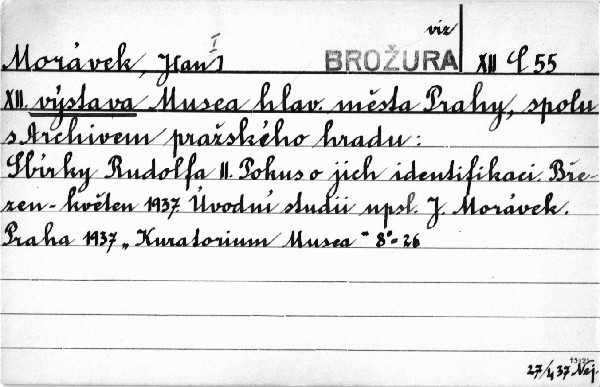 viz
Morávek, J[an] I BROŽURA XII C 55
XII. výstava Musea hlav. města Prahy, spolu
s Archivem pražského hradu:
Sbírky Rudolfa II. Pokus o jich identifikaci. Bře-
zen - květen 1937. Úvodní studii npsl. J. Morávek.
Praha 1937 „Kuratorium Musea" 8° - 26
27/4 37 Nej.